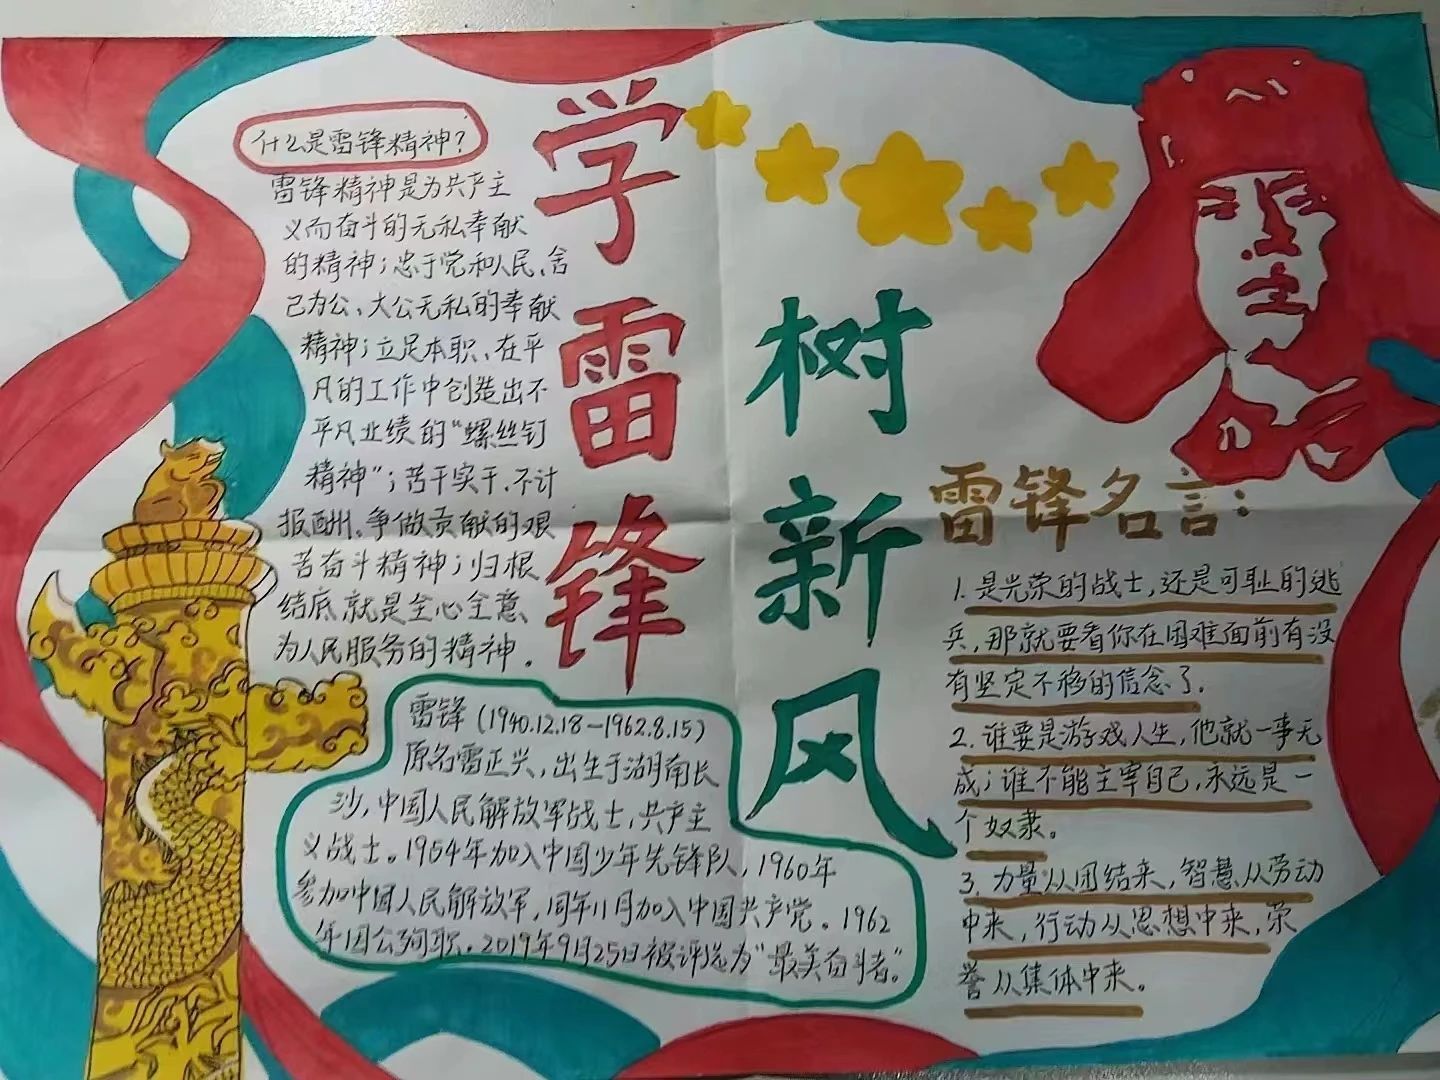 什么是雷锋精神？
雷锋精神是为共产主
义而奋斗的无私奉献
的精神；忠于党和人民、舍
己为公、大公无私的奉献
精神；立足本职、在平
凡的工作中创造出不
平凡业绩的“螺丝钉
精神”；苦干实干、不计
报酬、争做贡献的艰
苦奋斗精神；归根
结底，就是全心全意、
为人民服务的精神．
学雷锋
树新风
雷锋（1940.12.18-1962.8.15）
原名雷正兴，出生于湖南长
沙，中国人民解放军战士，共产主
义战士。1954年加入中国少年先锋队，1960年
参加中国人民解放军，同年11月加入中国共产党。1962
年因公殉职．2019年9月25日被评选为“最美奋斗者”。
雷锋名言：
1.是光荣的战士，还是可耻的逃
兵，那就要看你在困难面前有没
有坚定不移的信念了．
2.谁要是游戏人生，他就一事无
成；谁不能主宰自己，永远是一
个奴隶。
3.力量从团结来，智慧从劳动
中来，行动从思想中来，荣
誉从集体中来。